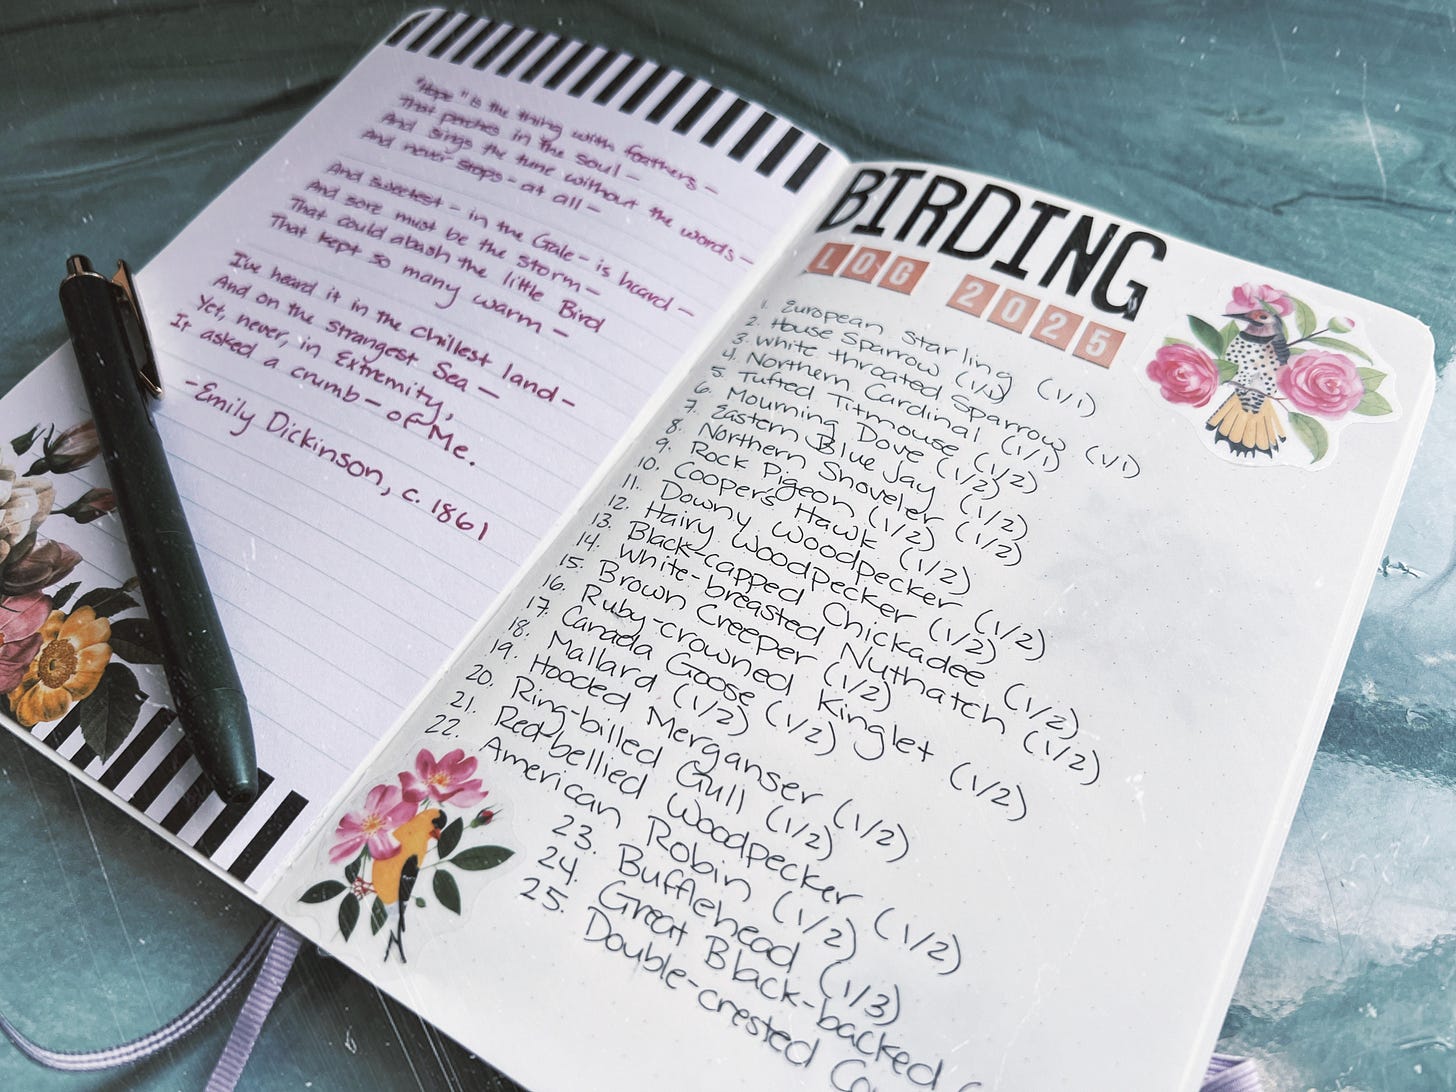 "Hope" is the thing with feathers -
That perches in the soul -
And sings the tune without the words -
And never stops - at all -
And sweetest - in the Gale - is heard -
And sore must be the storm -
That could abash the little Bird
That kept so many warm -
I've heard it in the chillest land -
And on the strangest Sea -
Yet, never, in Extremity,
It asked a crumb - of Me.
- Emily Dickinson, c. 1861
BIRDING
LOG 2025
1. European Starling (1/1)
2. House Sparrow (1/1)
3. White throated Sparrow (1/1)
4. Northern Cardinal (1/1)
5. Tufted Titmouse (1/2)
6. Mourning Dove (1/2)
7. Eastern Blue Jay (1/2)
8. Northern Shoveler (1/2)
9. Rock Pigeon (1/2)
10. Cooper's Hawk (1/2)
11. Downy Woodpecker (1/2)
12. Hairy Woodpecker (1/2)
13. Black-capped Chickadee (1/2)
14. White-breasted Nuthatch (1/2)
15. Brown Creeper (1/2)
16. Ruby-crowned Kinglet (1/2)
17. Canada Goose (1/2)
18. Mallard (1/2)
19. Hooded Merganser (1/2)
20. Ring-billed Gull (1/2)
21. Red-bellied Woodpecker (1/2)
22. American Robin (1/2)
23. Bufflehead (1/3)
24. Great Black-backed
25. Double-crested